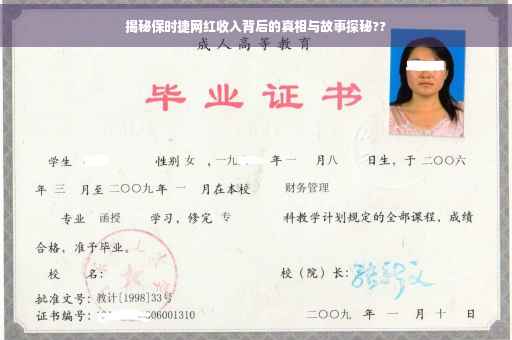 揭秘保时捷网红收入背后的真相与故事探秘??
成人高等教育
毕业证书
学生 性别 女 ,一九 年一 月八 日生,于二〇〇六
年 三 月至二〇〇九年 一 月在本校 财务管理
专业 函授 学习,修完 专 科教学计划规定的全部课程,成绩
合格,准予毕业。
校 名: 校(院)长:
批准文号:教计[1998]33号
证书编号: 06001310 二〇〇九 年 一 月 十 日